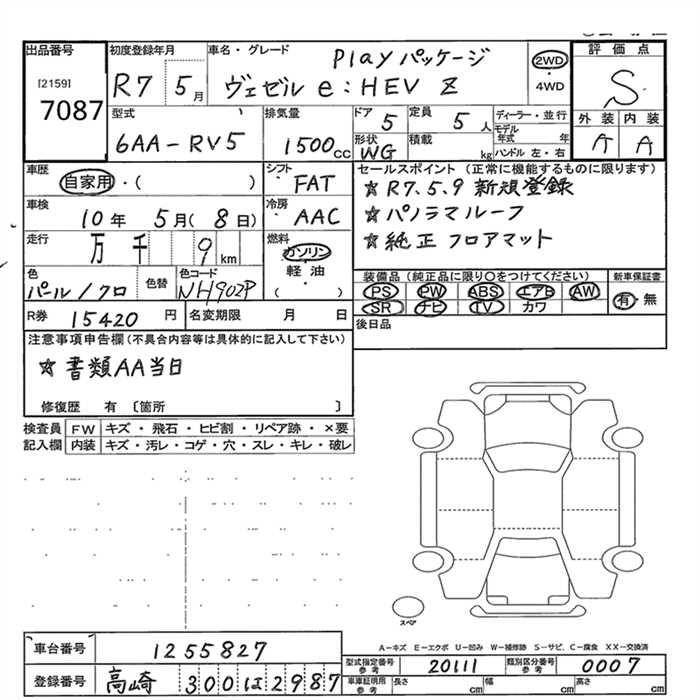 出品番号 初度登録年月 車名・グレード Playパッケージ 2WD 評価点
[2159] R7 5月 ヴェゼル e:HEV Z ・4WD S
7087 型式 排気量 ドア 定員 ディーラー・並行 外装 内装
6AA-RV5 1500cc 5 5人 モデル年式 年 A A
形状 WG 積載 kg ハンドル 左・右
車歴 シフト セールスポイント(正常に機能するものに限ります)
自家用・( ) FAT ☆R7.5.9 新規登録
車検 冷房 ☆パノラマルーフ
10年 5月( 8日) AAC ☆純正 フロアマット
走行 燃料
万 千 9 km ガソリン
色 色替 色コード 軽油 装備品(純正品に限り○をつけてください) 新車保証書
パール/クロ NH902P ( ) PS PW ABS エアB AW 有・無
SR ナビ TV カワ
R券 15420円 名変期限 月 日 後日品
注意事項申告欄(不具合内容等は具体的に記入して下さい)
☆書類AA当日
修復歴 有 〔箇所 〕
検査員 FW キズ・飛石・ヒビ割・リペア跡・×要
記入欄 内装 キズ・汚レ・コゲ・穴・スレ・キレ・破レ
スペア
A-キズ E-エクボ U-凹み W-補修跡 S-サビ、C-腐食 XX-交換済
車台番号 1255827
型式指定番号 参考 20111 類別区分番号 参考 0007
登録番号 高崎 300 は 2987
車庫証明用 参考 長さ cm 幅 cm 高さ cm